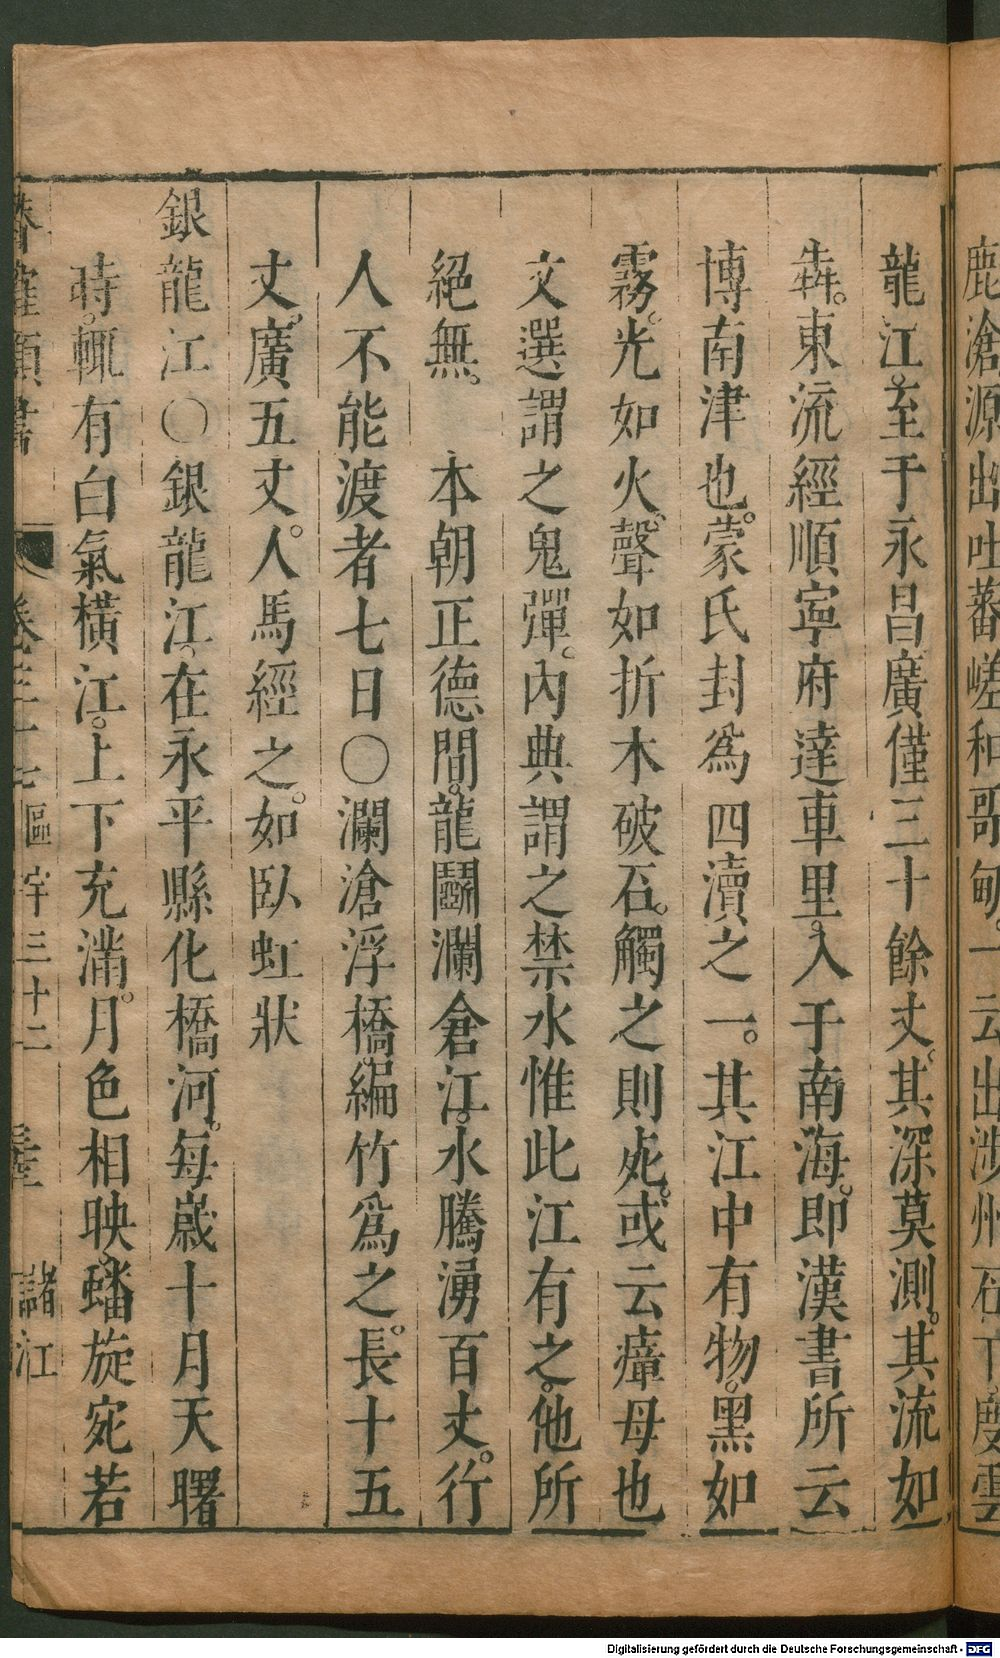 鹿滄源出吐蕃嵯和哥甸。一云出涉州石下度雲
龍江、至于永昌廣僅三十餘丈。其深莫測。其流如
犇。東流經順寧府達車里、入于南海。即漢書所云
博南津也。蒙氏封爲四瀆之一。其江中有物。黑如
霧。光如火、聲如折木破石。觸之則死。或云瘴母也
文選謂之鬼彈。內典謂之禁水惟此江有之。他所
絕無。　本朝正德間。龍鬭瀾倉江。水騰湧百丈。行
人不能渡者七日○瀾滄浮橋。編竹爲之。長十五
丈。廣五丈。人馬經之。如臥虹狀
銀龍江○銀龍江、在永平縣化橋河。每歲十月天曙
時。輒有白氣橫江。上下充滿。月色相映、蟠旋宛若
卷三十七 區宇三十二 諸江
Digitalisierung gefördert durch die Deutsche Forschungsgemeinschaft - DFG